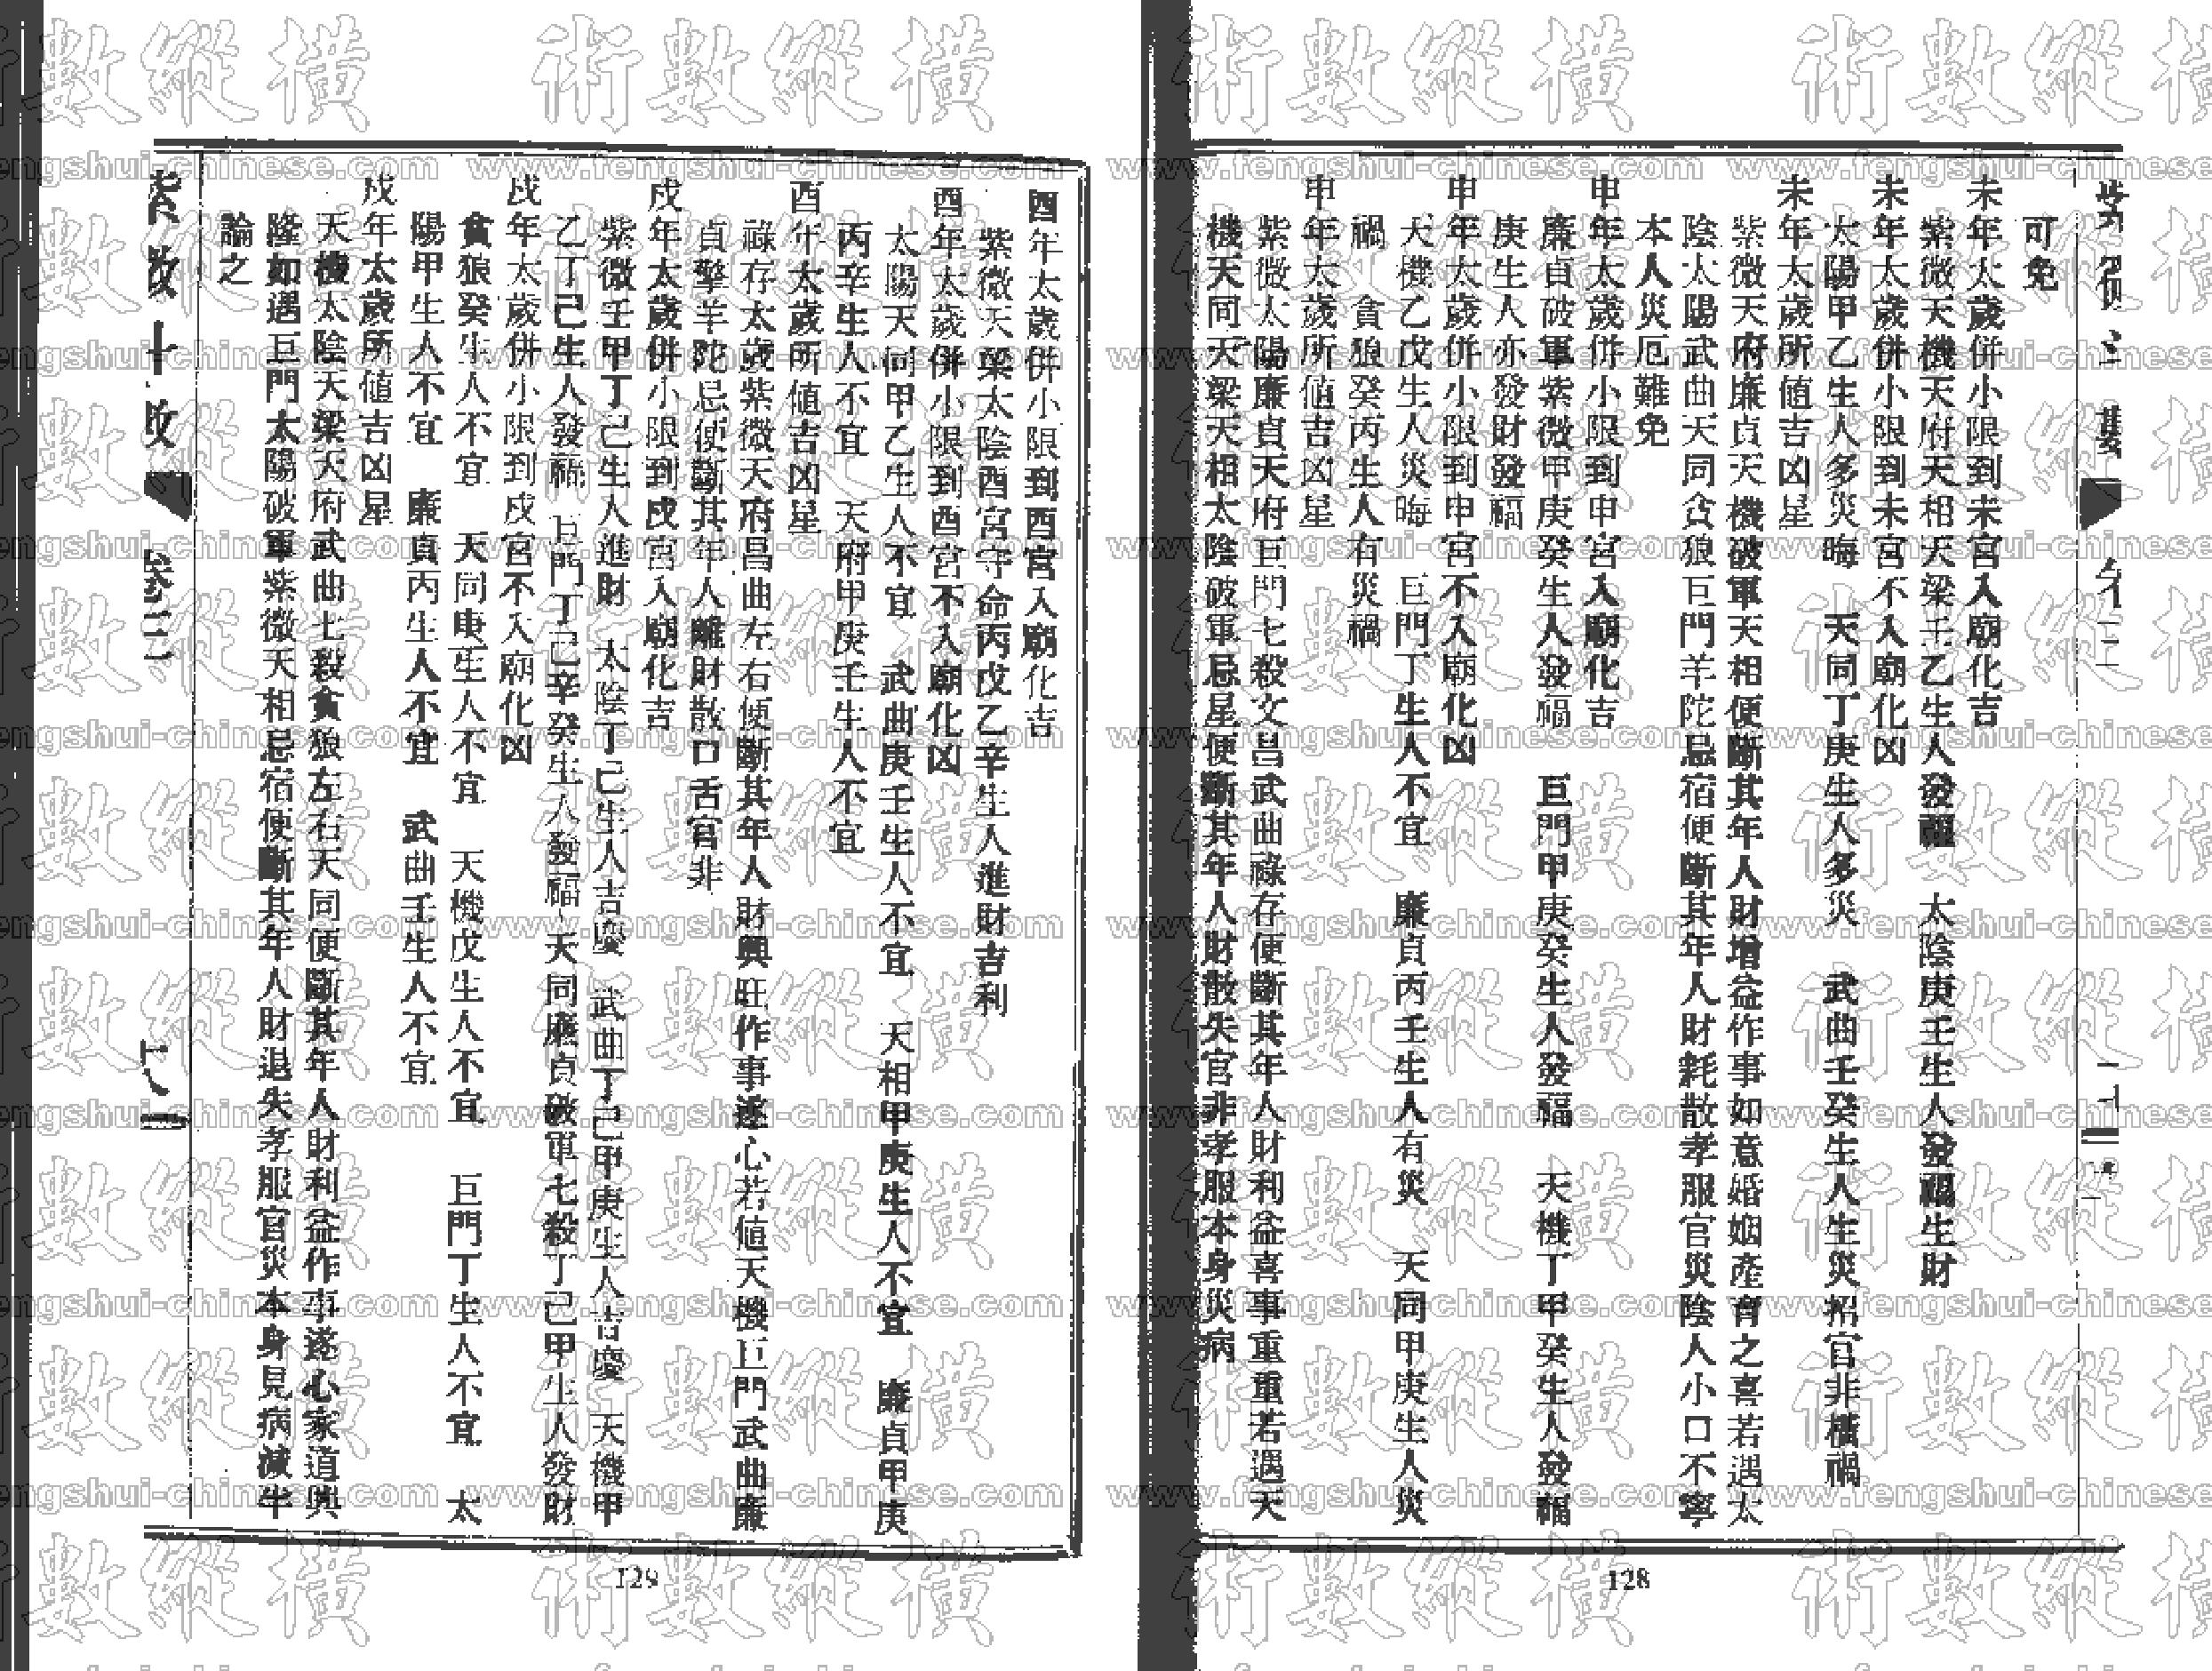 可免
未年太歲併小限到未宮入廟化吉
紫微天機天府天相天梁壬乙生人發福　太陰庚壬生人發福生財
未年太歲併小限到未宮不入廟化凶
太陽甲乙生人多災晦　天同丁庚生人多災　武曲壬癸生人生災招官非橫禍
未年太歲所值吉凶星
紫微天府廉貞天機破軍天相便斷其年人財增益作事如意婚姻產育之喜若遇太
陰太陽武曲天同貪狼巨門羊陀忌宿便斷其年人財耗散孝服官災陰人小口不寧
本人災厄難免
申年太歲併小限到申宮入廟化吉
廉貞破軍紫微甲庚癸生人發福　巨門甲庚癸生人發福　天機丁甲癸生人發福
庚生人亦發財發福
申年太歲併小限到申宮不入廟化凶
天機乙戊生人災晦　巨門丁生人不宜　廉貞丙壬生人有災　天同甲庚生人災
禍　貪狼癸丙生人有災禍
申年太歲所值吉凶星
紫微太陽廉貞天府巨門七殺文昌武曲祿存便斷其年人財利益喜事重重若遇天
機天同天梁天相太陰破軍忌星便斷其年人財散失官非孝服本身災病
128
酉年太歲併小限到酉宮入廟化吉
紫微天梁太陰酉宮守命丙戊乙辛生人進財吉利
酉年太歲併小限到酉宮不入廟化凶
太陽天同甲乙生人不宜　武曲庚壬生人不宜　天相甲庚生人不宜　廉貞甲庚
丙辛生人不宜　天府甲庚壬生人不宜
酉年太歲所值吉凶星
祿存太歲紫微天府昌曲左右便斷其年人財興旺作事遂心若值天機巨門武曲廉
貞擎羊陀忌便斷其年人離財散口舌官非
戌年太歲併小限到戌宮入廟化吉
紫微壬甲丁己生人進財　太陰丁己生人吉慶　武曲丁己甲庚生人吉慶　天機甲
乙丁己生人發福　巨門丁己辛癸生人發福　天同廉貞破軍七殺丁己甲生人發財
戌年太歲併小限到戌宮不入廟化凶
貪狼癸生人不宜　天同庚生人不宜　天機戊生人不宜　巨門丁生人不宜　太
陽甲生人不宜　廉貞丙生人不宜　武曲壬生人不宜
戌年太歲所值吉凶星
天機太陰天梁天府武曲七殺貪狼左右天同便斷其年人財利益作事遂心家道興
隆如遇巨門太陽破軍紫微天相忌宿便斷其年人財退失孝服官災本身見病減半
論之
卷三
129